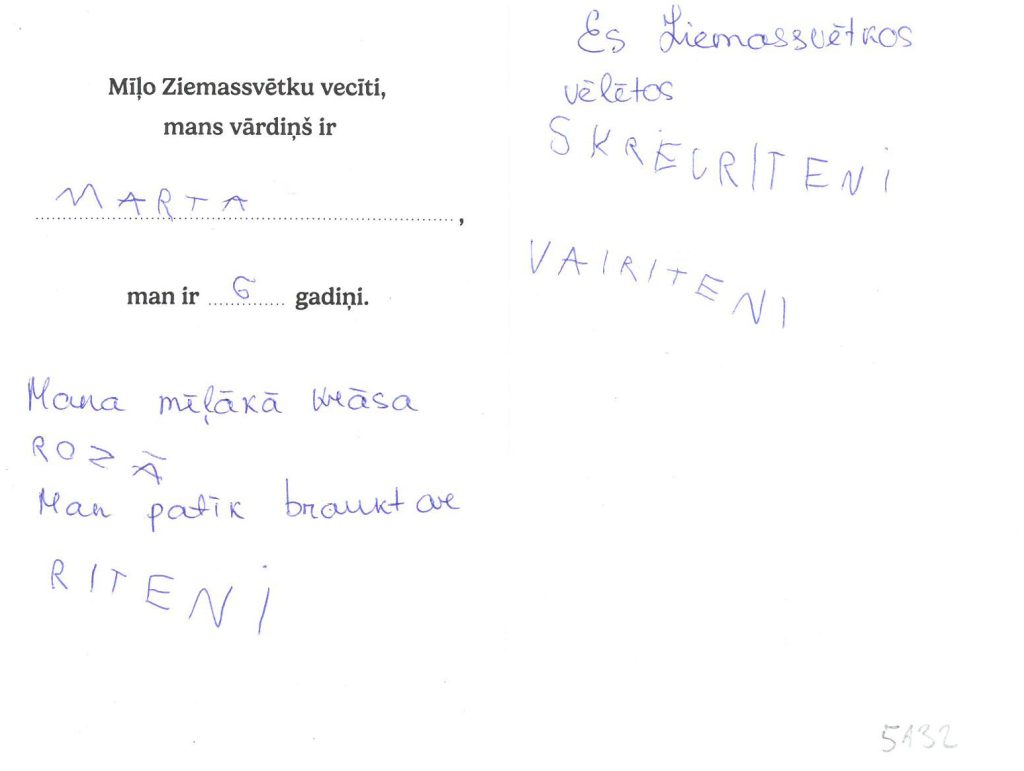 Mīļo Ziemassvētku vecīti,
mans vārdiņš ir
MARTA,
man ir 6 gadiņi.
Mana mīļākā krāsa
ROZĀ
Man patīk braukt ar
RITENI
Es Ziemassvētkos
vēlētos
SKREURITENI
VAIRITENI
5132